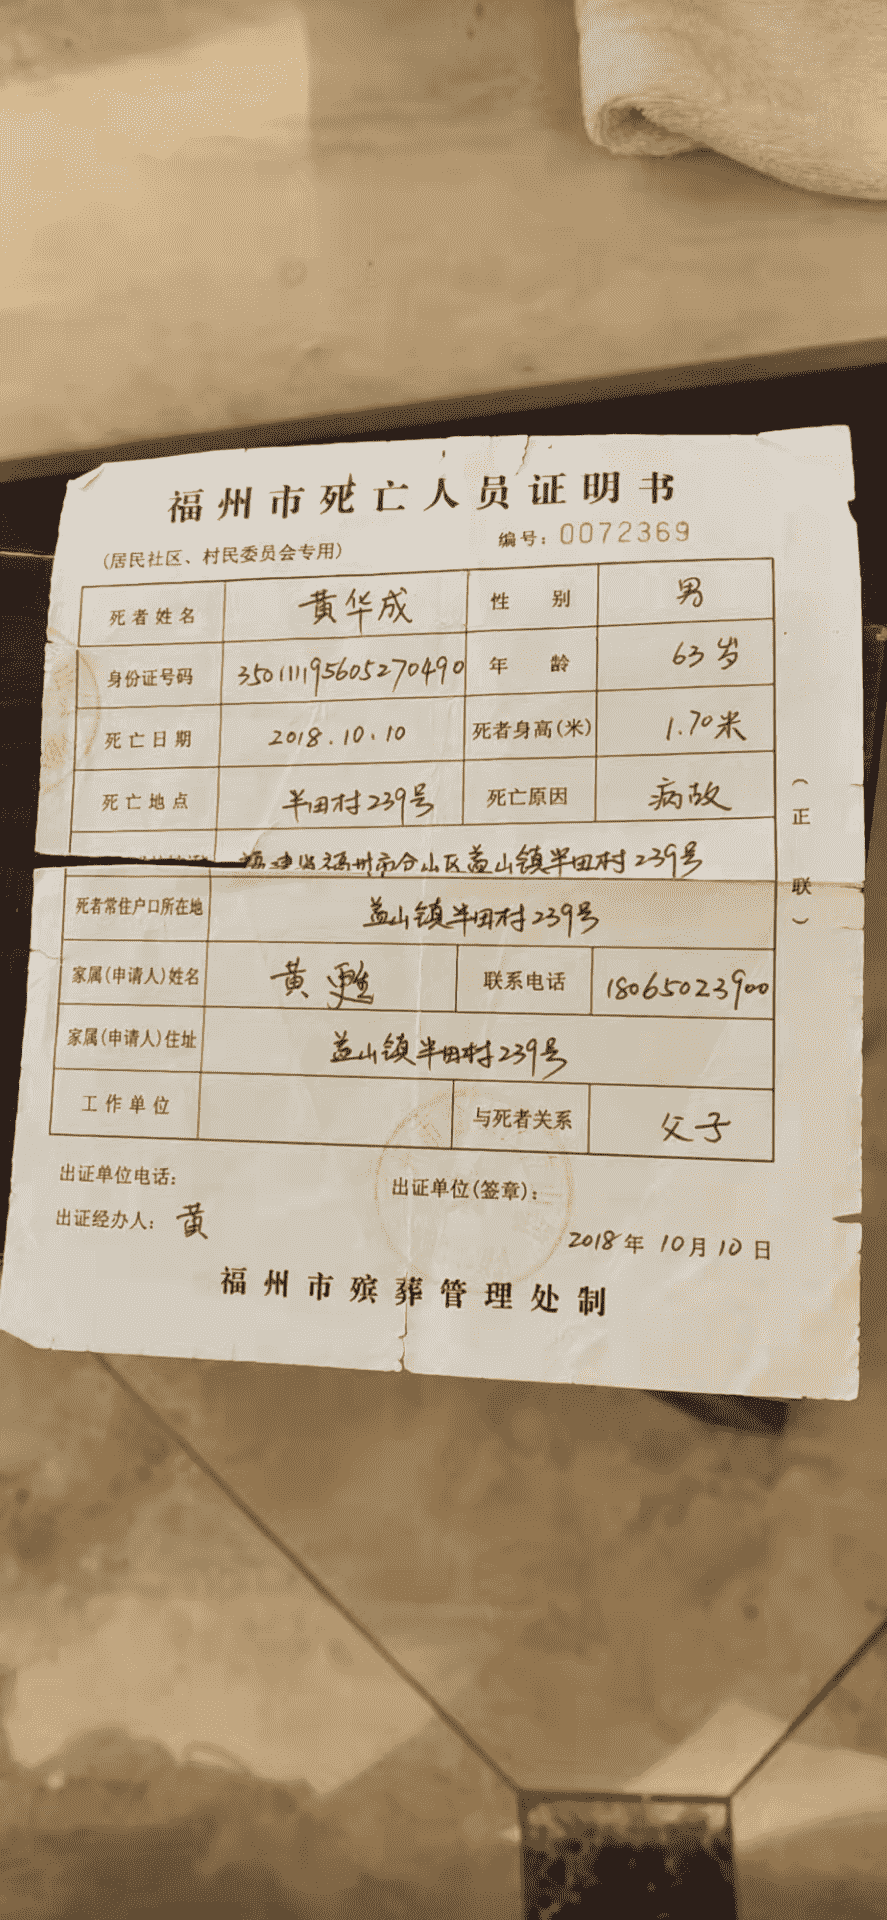 福州市死亡人员证明书
(居民社区、村民委员会专用) 编号：0072369
死者姓名 黄华成 性别 男
身份证号码 350111195605270490 年龄 63岁
死亡日期 2018.10.10 死者身高(米) 1.70米
死亡地点 半田村239号 死亡原因 病故
福建省福州市仓山区盖山镇半田村239号
死者常住户口所在地 盖山镇半田村239号
家属(申请人)姓名 黄 联系电话 18065023900
家属(申请人)住址 盖山镇半田村239号
工作单位 与死者关系 父子
(正联)
出证单位电话： 出证单位(签章)：
出证经办人：黄
2018年10月10日
福州市殡葬管理处制